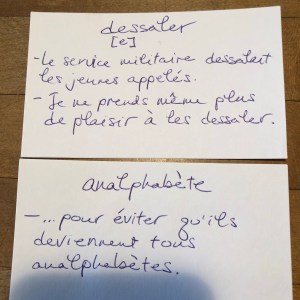 dessaler
[e]
- le service militaire dessalait
les jeunes appelés.
- Je ne prends même plus
de plaisir à les dessaler.
analphabète
- ... pour éviter qu'ils
deviennent tous
analphabètes.